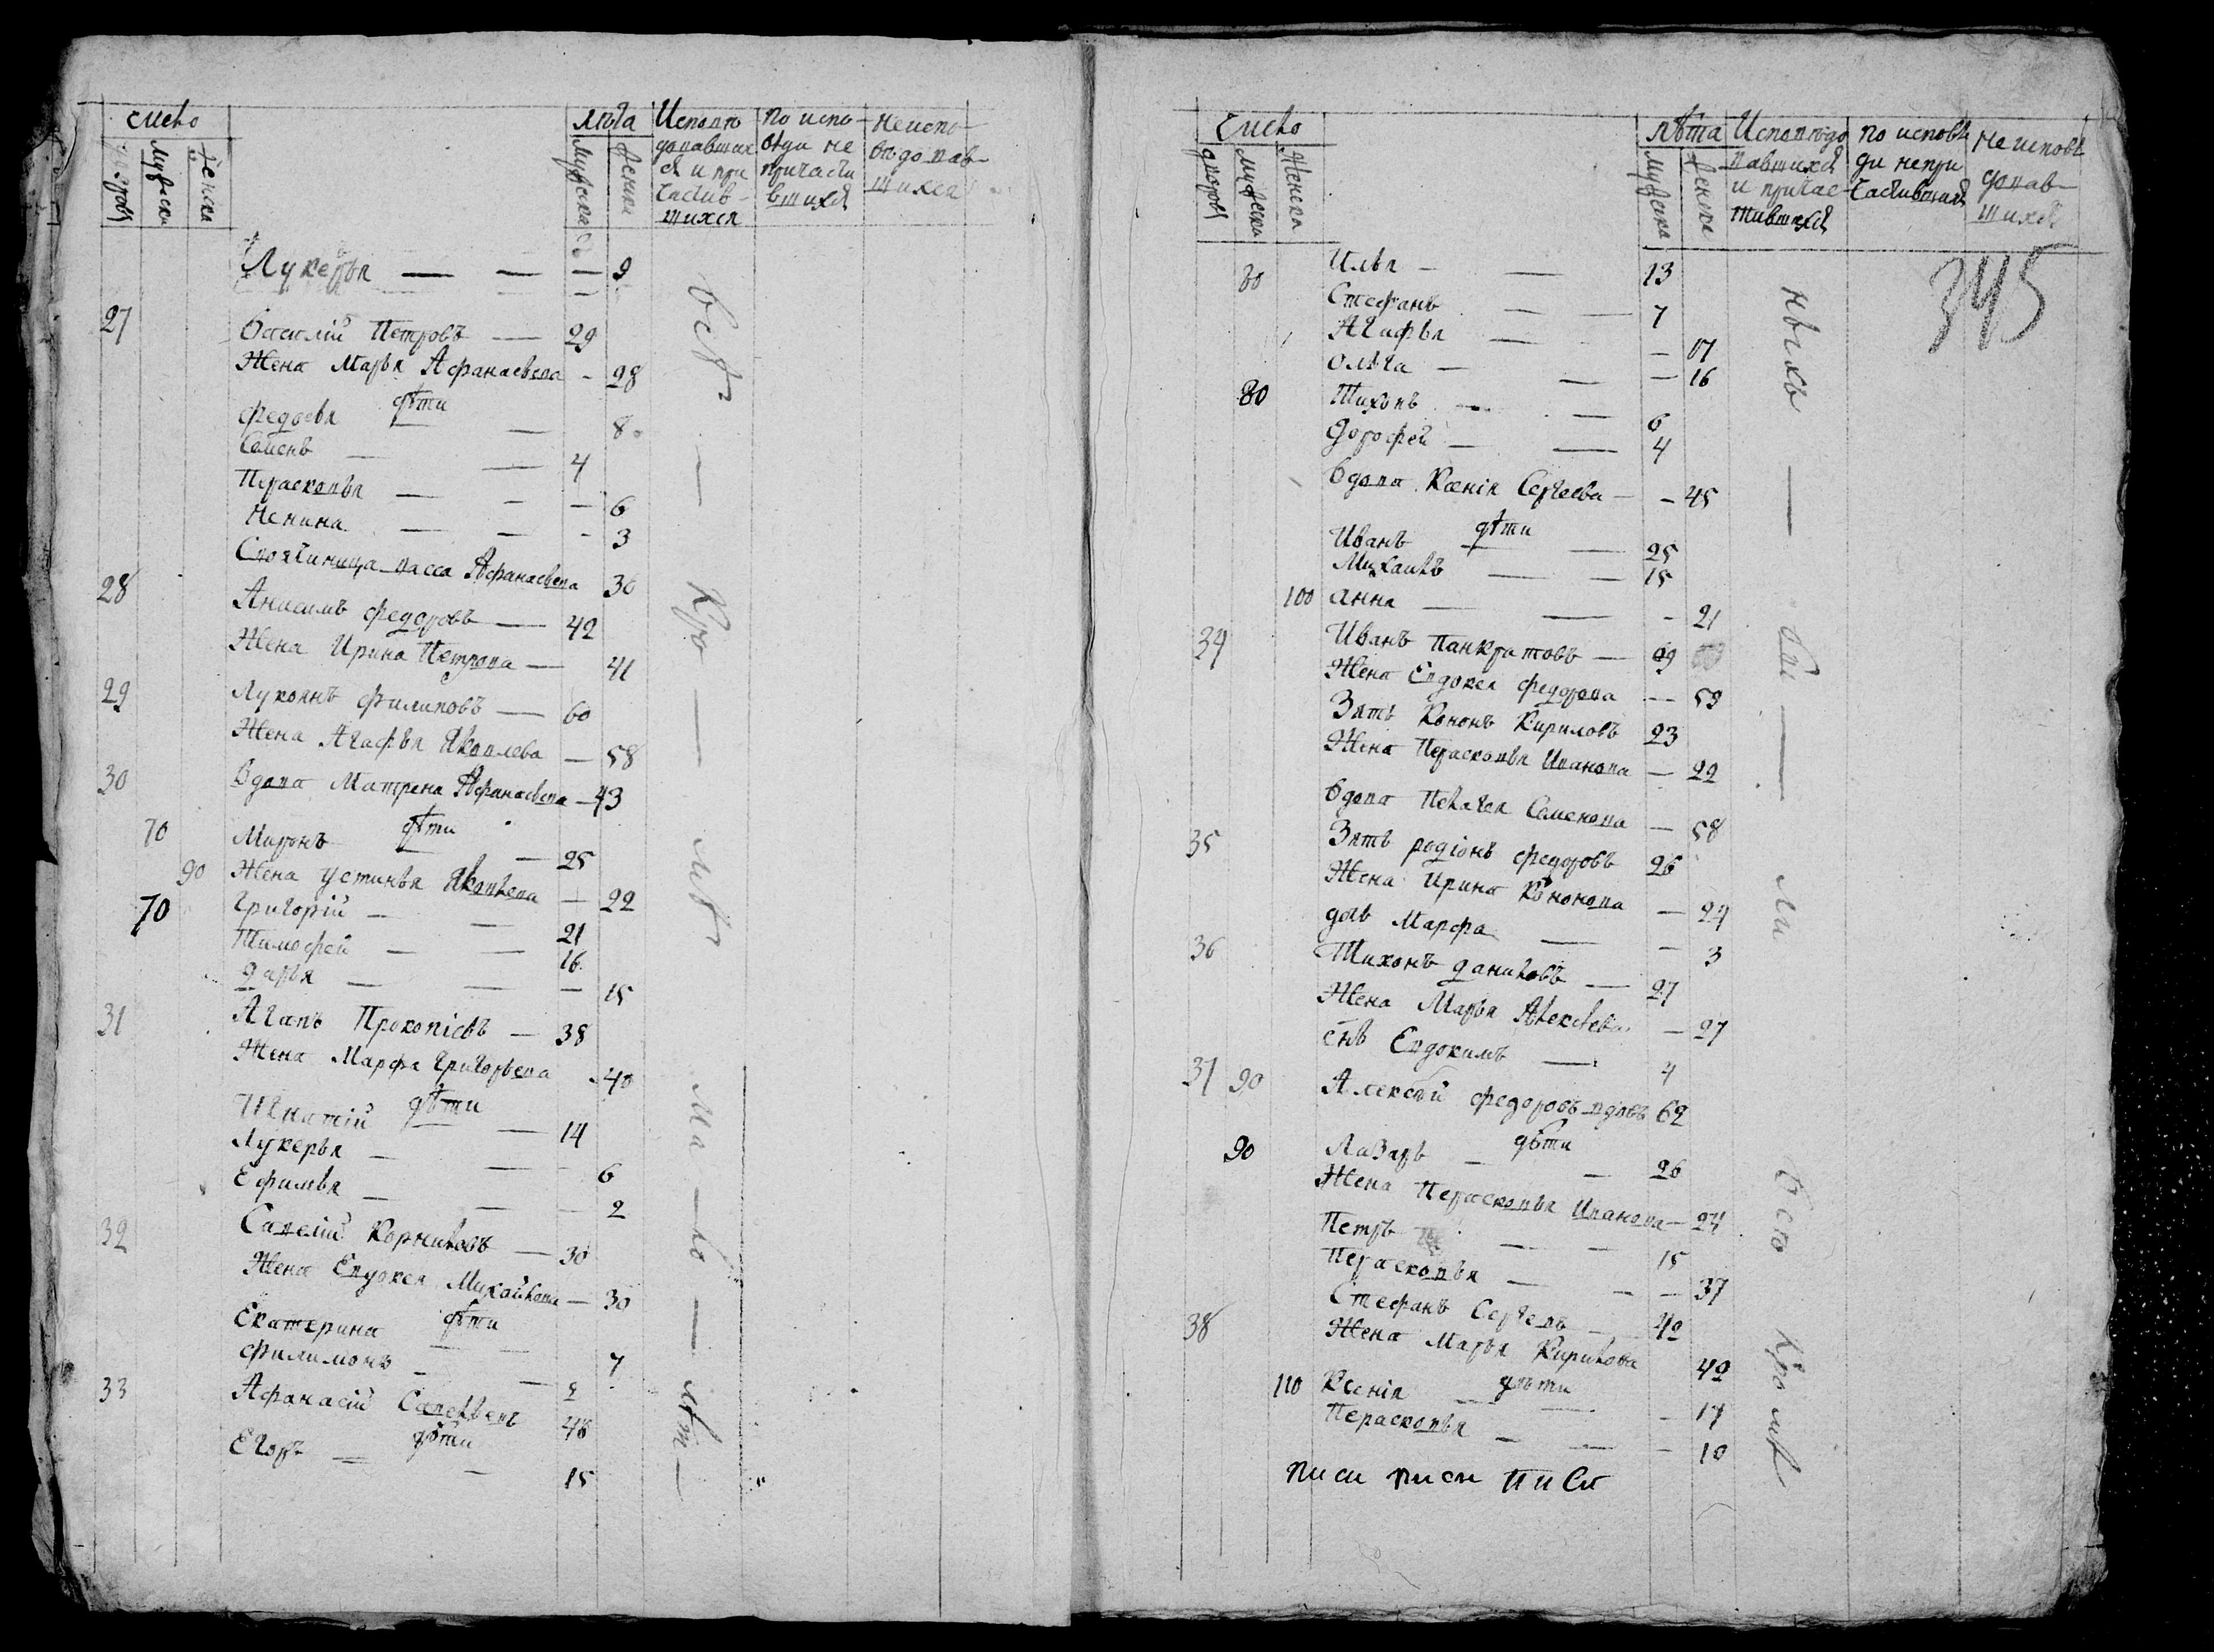 число
дворовъ
мужеска
женска
лѣта
мужеска
женска
Исповѣ
довавших
ся и при
частив-
шихся
по испо-
вѣди не
причасти
вшихся
не испо-
вѣдовав-
шихся
Лукерья — — — 9
27 Василий Петровъ — 29
Жена Марья Афанасьева - 28
дѣти
Федосья — 8
Семенъ — — 4
Парасковья — — — 6
Ненила — — - 3
Своячиница васса Афанасьева 30
28 Анисимъ Федоровъ — 42
Жена Ирина Петрова — 41
29 Лукоянъ Филиповъ — 60
Жена Агафья Яковлева — 58
30 Вдова Матрена Афанасьева — 43
дѣти
70 Миронъ — 25
90 Жена Устинья Яковлева — 22
70 Григорий — — 21
Тимофей — — 16
Дарья — — — 15
31 Агапъ Прокопіевъ — 38
Жена Марфа Григорьева 40
дѣти
Игнатій — 14
Лукерья — — 6
Ефимья — — - 2
32 Савелий Корниловъ — 30
Жена Евдокея Михайлова — 30
дѣти
Екатерина — — 7
Филимонъ — — 2
33 Афанасий Савельевъ 48
дѣти
Егоръ — — 15
345
число
дворовъ
мужеска
женска
лѣта
мужеска
женска
Исповѣдо
вавшихся
и причас-
тившихся
по исповѣ
ди непри
частившихся
не исповѣ
довав-
шихся
80 Илья — — 13
Стефанъ — — 7
Агафья — — 17
Ольга — — — 16
80 Тихонъ — — 6
Дорофей — — 4
Вдова Ксенія Сергеева — - 45
дѣти
Иванъ — 25
Михаилъ — — 15
100 Анна — — - 21
34 Иванъ Панкратовъ — 49
Жена Евдокея Федорова — 59
Зять Кононъ Кириловъ 23
Жена Парасковья Иванова — 22
Вдова Пелагея Семенова — 58
35 Зять родіонъ Федоровъ 26
Жена Ирина Кононова — 24
дочь Марфа — — 3
36 Тихонъ Даниловъ — 27
Жена Марья Алексѣева — 27
снъ Евдокимъ — 4
37 90 Алексѣй Федоровъ вдовъ 62
дѣти
90 Лазарь — — 26
Жена Перасковья Иванова — 24
Петръ — — 15
Перасковья — — — 37
38 Стефанъ Сергеевъ — 42
Жена Марья Кирилова 42
дѣти
110 Ксенія — - 17
Перасковья — — — 10
писи писи пиСи